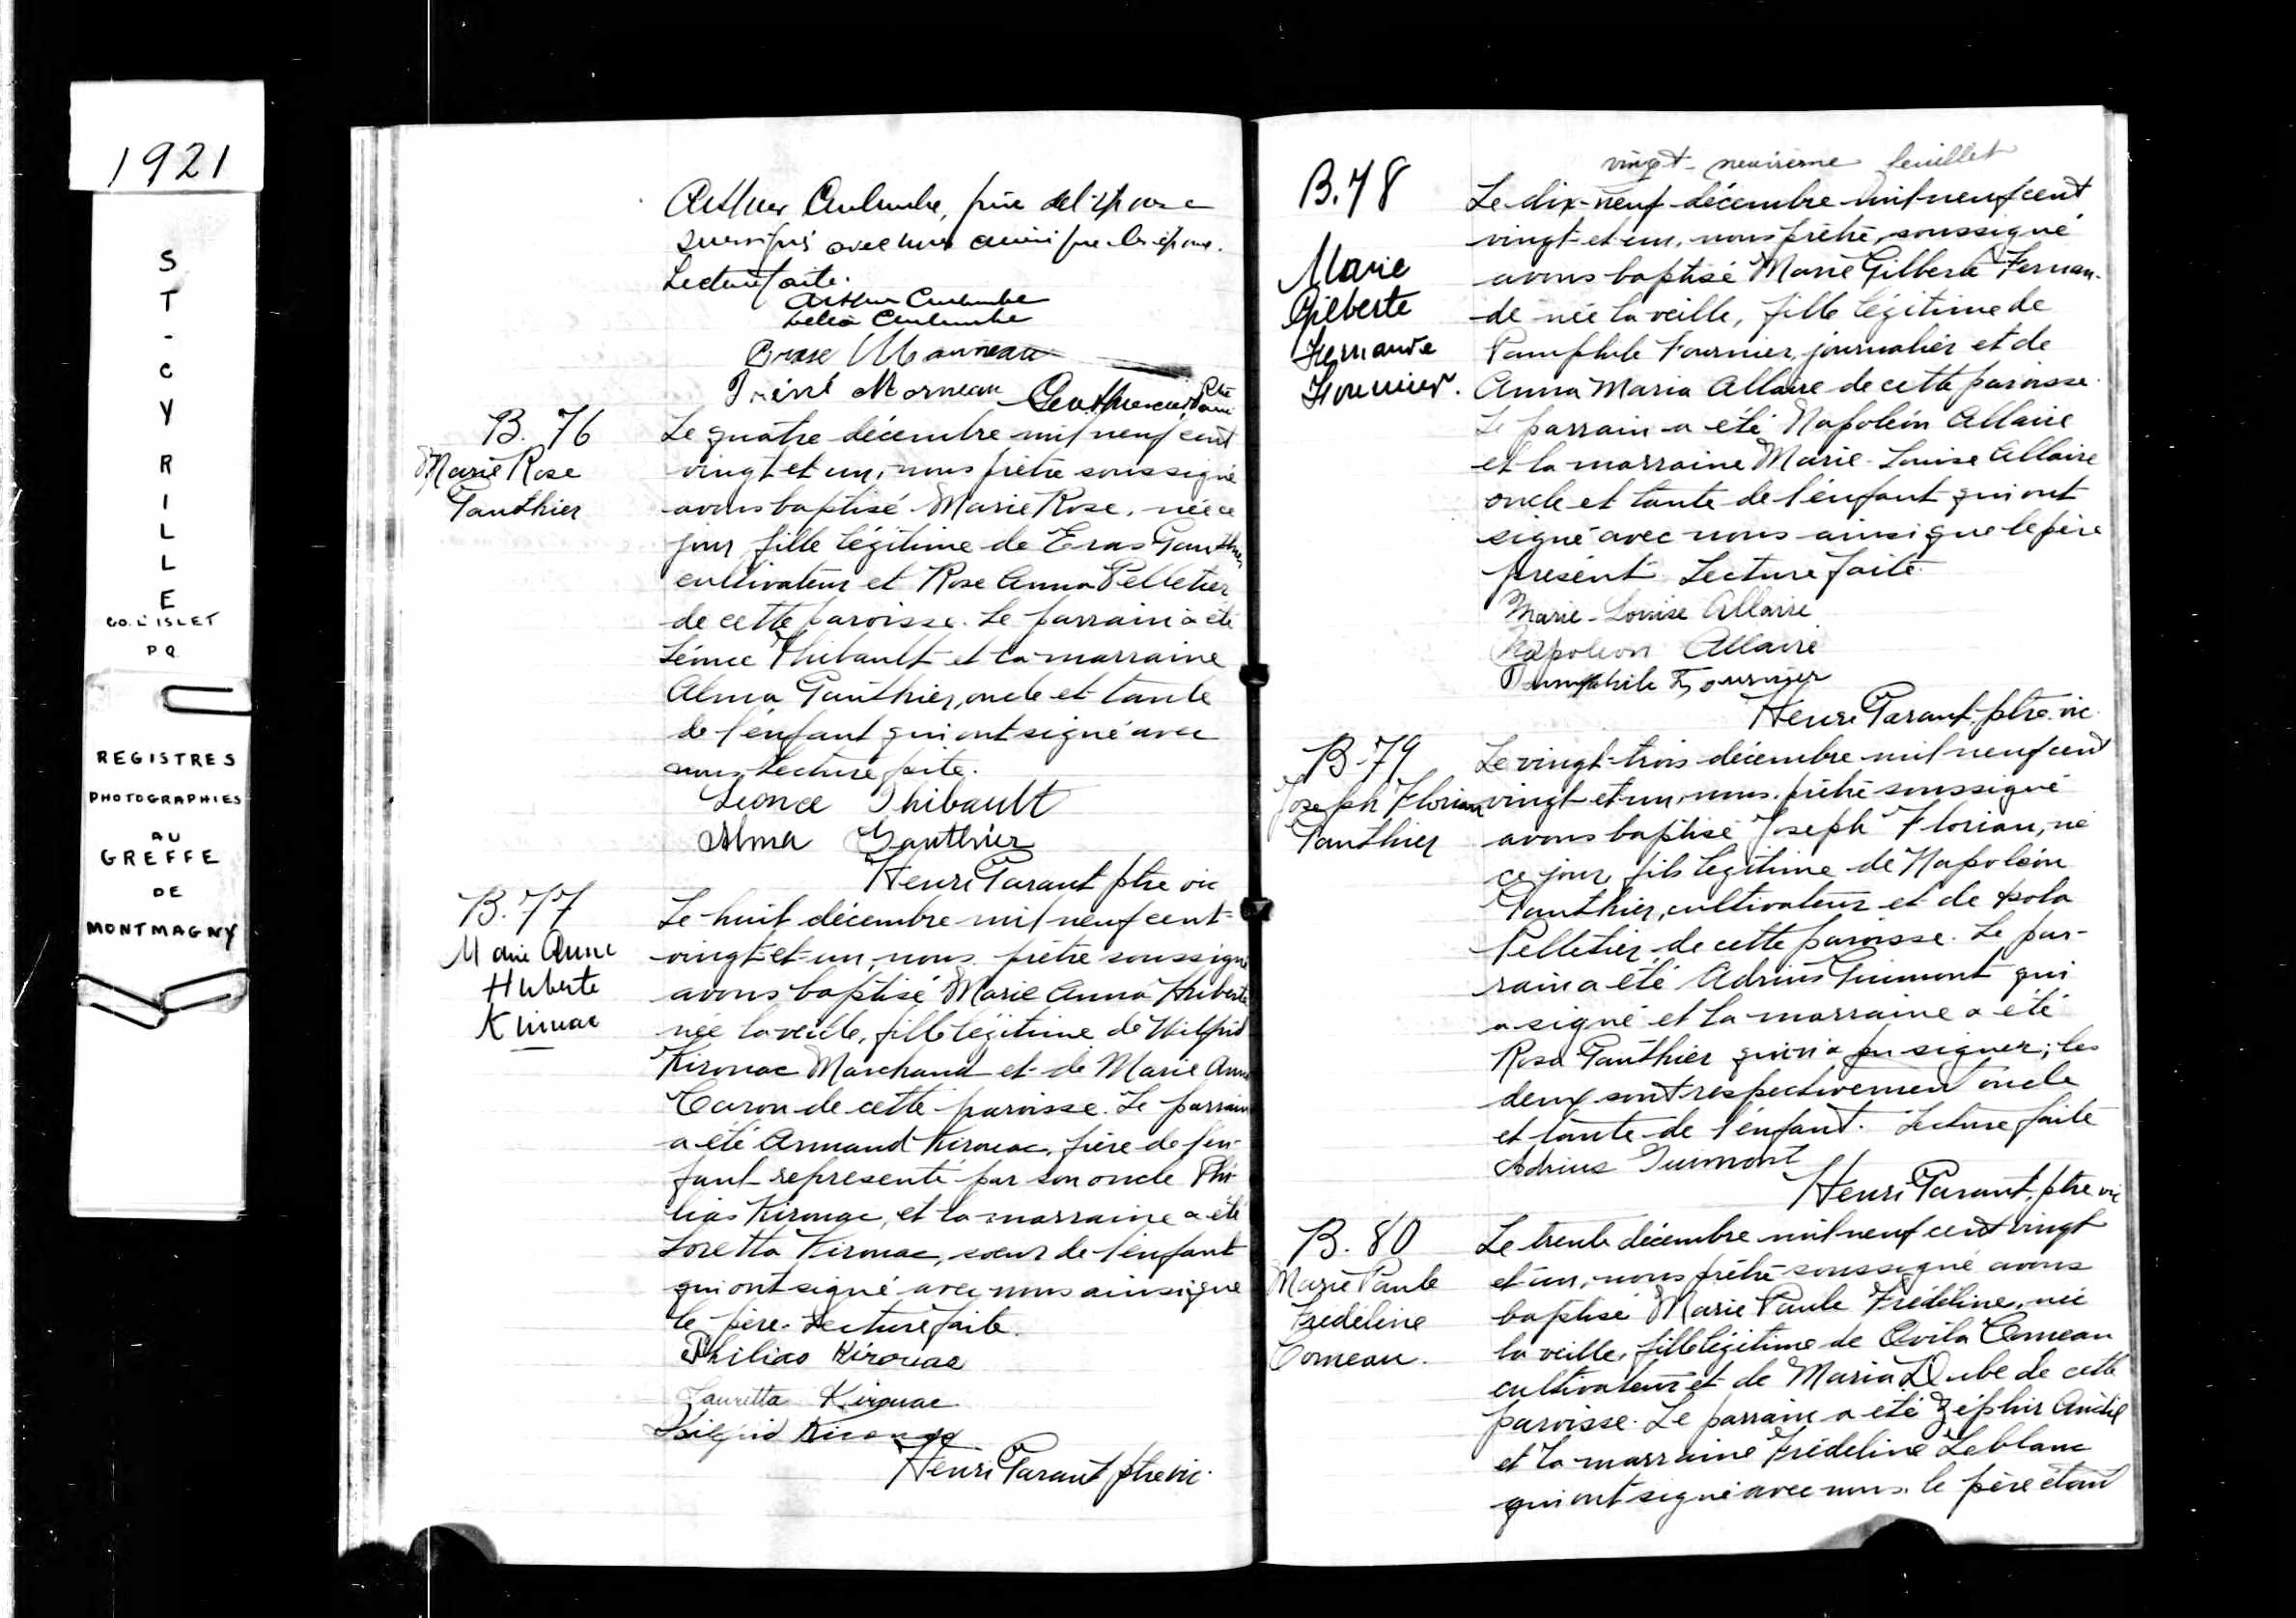 1921
ST-CYRILLE
CO. L'ISLET
P Q
REGISTRES
PHOTOGRAPHIES
AU
GREFFE
DE
MONTMAGNY
Arthur
Lecture faite.
Morneau
B. 76
Marie Rose
Gauthier
Le quatre décembre mil neuf cent
vingt et un, nous prêtre soussigné
avons baptisé Marie Rose, née ce
jour fille légitime de Eras Gauthier
cultivateur et Rose Anna Pelletier
de cette paroisse. Le parrain a été
Léonce Thibault et la marraine
Alma Gauthier, oncle et tante
de l'enfant qui ont signé avec
nous Lecture faite.
Leonce Thibault
Alma Gauthier
Henri Parant ptre vic
B. 77
Marie Anna
Huberte
Kirouac
Le huit décembre mil neuf cent-
vingt-et-un, nous prêtre soussigné
avons baptisé Marie Anna Huberte
née la veille, fille légitime de Wilfrid
Kirouac Marchand et de Marie Anna
Caron de cette paroisse. Le parrain
a été Armand Kirouac, frère de l'en-
fant représenté par son oncle Phi-
lias Kirouac, et la marraine a été
Loretta Kirouac, soeur de l'enfant
qui ont signé avec nous ainsi que
le père. Lecture faite.
Philias Kirouac
Lauretta Kirouac
Wilfrid Kirouac
Henri Parant ptre vic.
vingt-neuvième feuillet
B. 78
Marie
Gilberte
Fernande
Fournier.
Le dix-neuf décembre mil neuf cent
vingt-et-un, nous prêtre, soussigné
avons baptisé Marie Gilberte Fernan-
de née la veille, fille légitime de
Pamphile Fournier, journalier et de
Anna Maria Allaire de cette paroisse.
Le parrain a été Napoléon Allaire
et la marraine Marie-Louise Allaire
oncle et tante de l'enfant qui ont
signé avec nous ainsi que le père
présent Lecture faite.
Marie-Louise Allaire
Napoleon Allaire
Pamphile Fournier
Henri Parant, ptre. vic.
B-79
Joseph Florian
Gauthier
Le vingt-trois décembre mil neuf cent
vingt-et-un, nous, prêtre soussigné
avons baptisé Joseph Florian, né
ce jour, fils légitime de Napoléon
Gauthier, cultivateur et de
Pelletier, de cette paroisse. Le par-
rain a été Adrius Guimont qui
a signé et la marraine a été
Rosa Gauthier qui n'a pu signer; les
deux sont respectivement oncle
et tante de l'enfant. Lecture faite
Adrius Guimont
Henri Parant, ptre vic
B. 80
Marie Paule
Fredéline
Comeau.
Le trente décembre mil neuf cent vingt
et un, nous prêtre soussigné avons
baptisé Marie Paule Frédéline, née
la veille, fille légitime de Ovila Comeau
cultivateur et de Maria Dube de cette
paroisse. Le parrain a été Zéphir
et la marraine Frédeline Leblanc
qui ont signé avec nous. le père étant